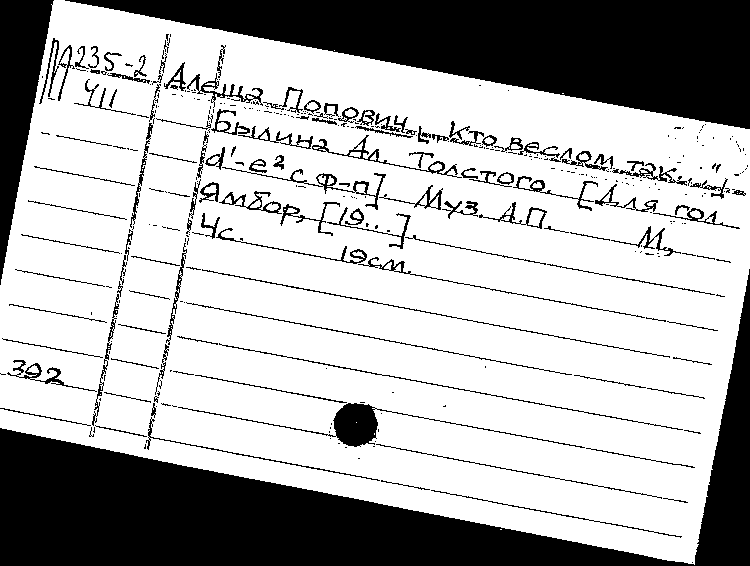 П235-2
411
Алеша Попович [„Кто веслом так..."]
Былина Ал. Толстого. [Для гол.
d'-e² с ф-п]. Муз. А.П. М.,
Ямбор, [19...].
4с. 19см.
392